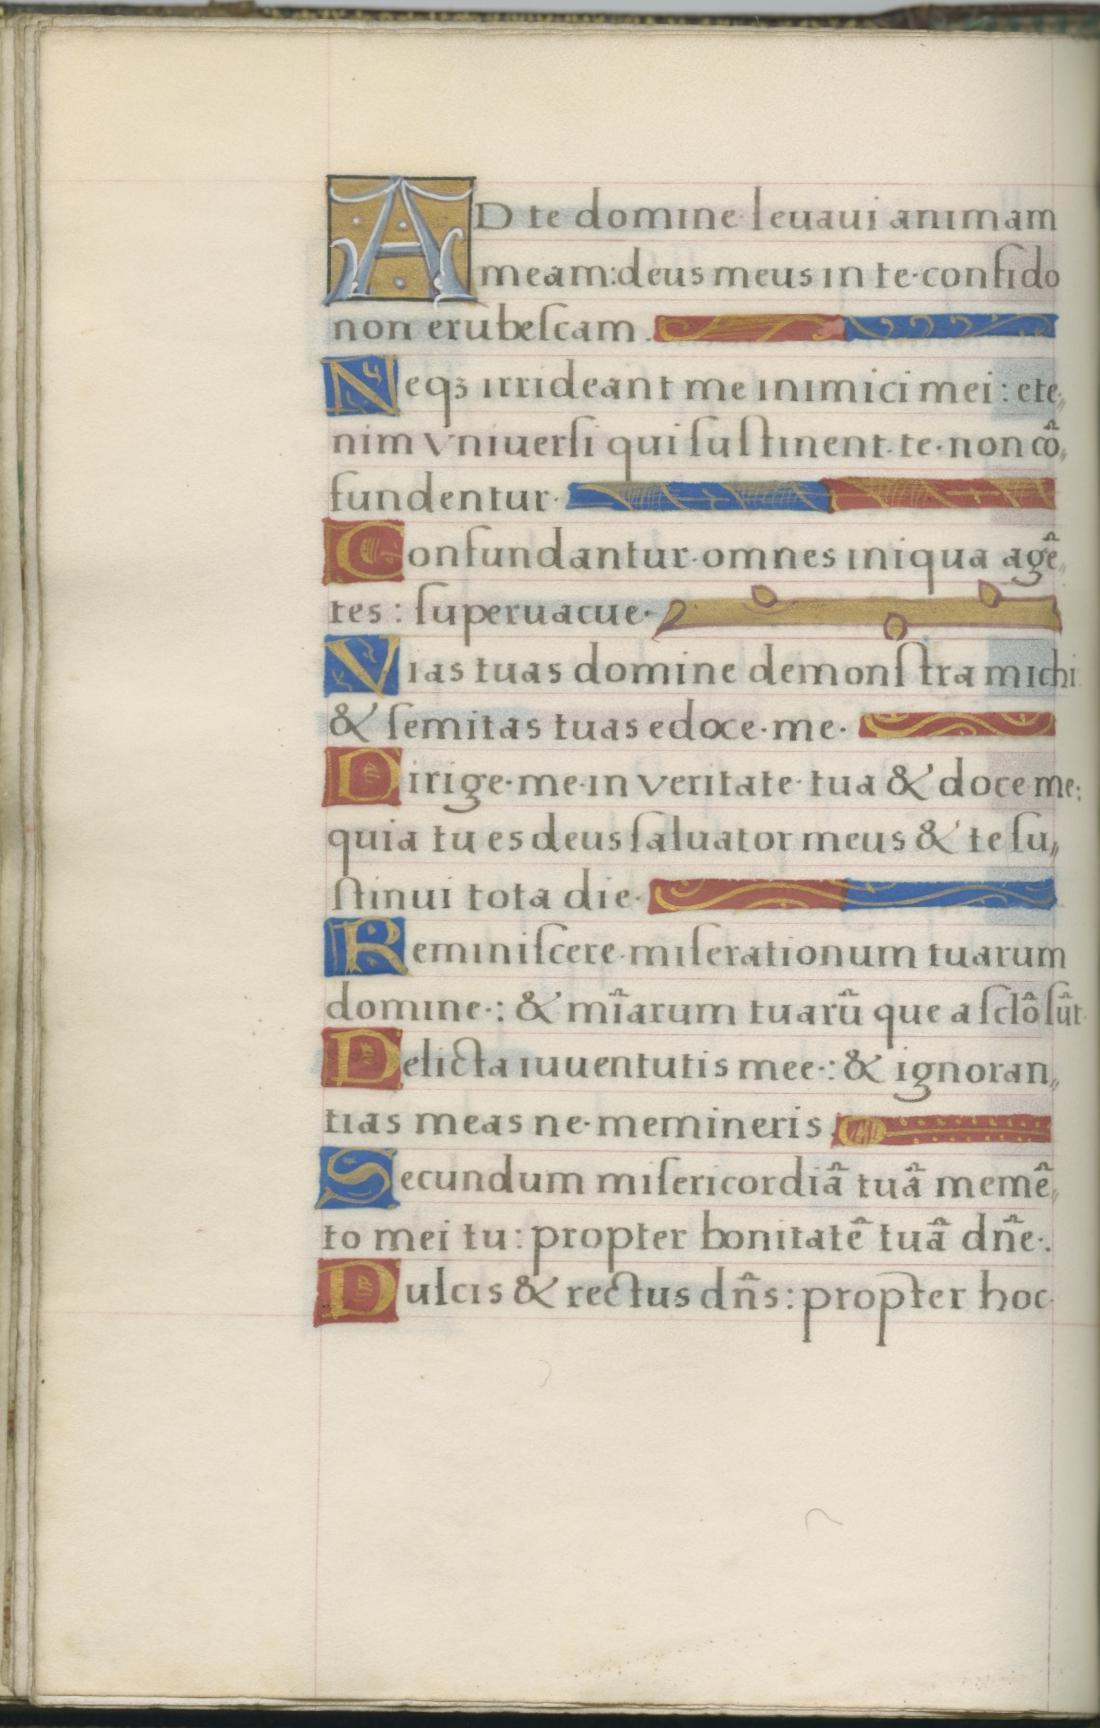 AD te domine leuaui animam
meam:deus meus in te·confido
non erubeſcam.
Neqꝫ irrideant me inimici mei: ete,,
nim vniuerſi qui ſuſtinent te·non cō,,
fundentur·
Confundantur·omnes iniqua agē,,
tes: ſuperuacue·
Vias tuas domine demonſtra michi
& ſemitas tuas edoce·me·
Dirige·me·in veritate tua & doce me:
quia tu es deus ſaluator meus & te ſu,,
ſtinui tota die·
Reminiſcere·miſerationum tuarum
domine·: & mīarum tuarū que a ſclō ſūt
Delicta iuuentutis mee·: & ignoran,,
tias meas ne·memineris.
Secundum miſericordiā tuā memē,,
to mei tu: propter bonitatē tuā dn̄e·.
Dulcis & rectus dn̄s: propter hoc